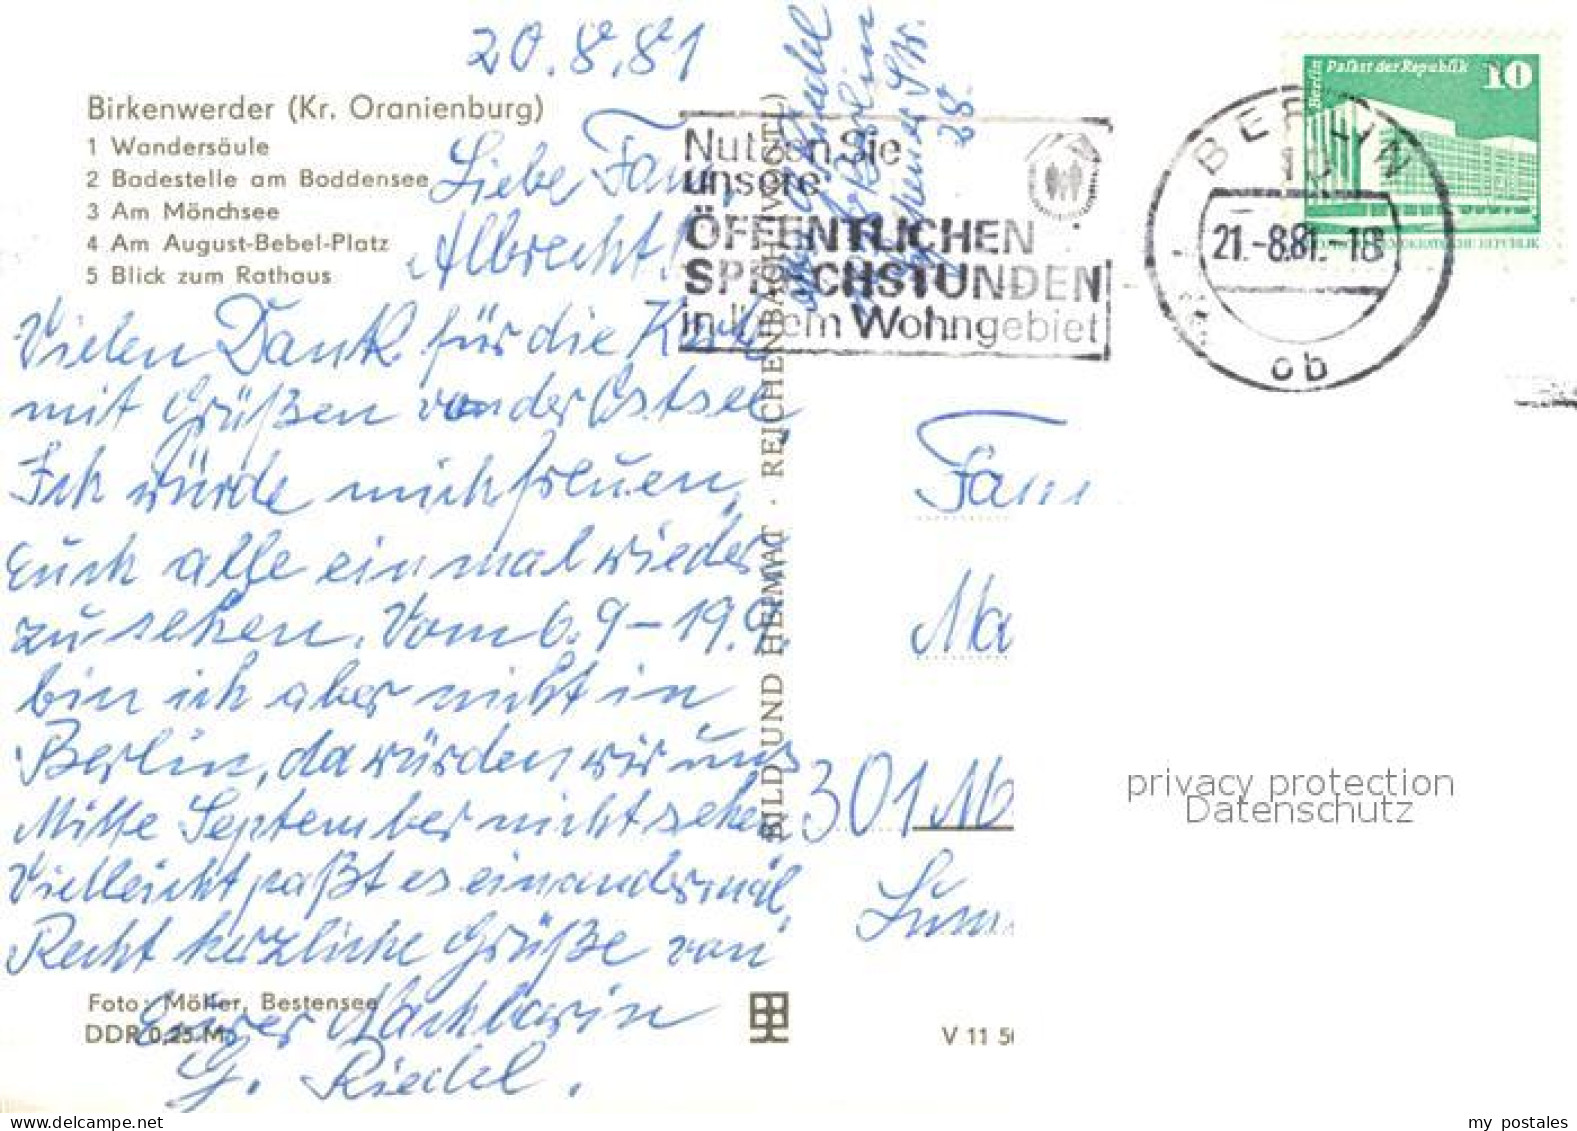 20.8.81
Birkenwerder (Kr. Oranienburg)
1 Wandersäule
2 Badestelle am Boddensee
3 Am Mönchsee
4 Am August-Bebel-Platz
5 Blick zum Rathaus
Liebe Fam.
Albrecht!
Vielen Dank für die Karte
mit Grüßen von der Ostsee.
Ich würde mich freuen,
Euch alle einmal wieder
zu sehen. Vom 6.9-19.9.
bin ich aber nicht in
Berlin, da würden wir uns
Mitte September nicht sehen
Vielleicht paßt es einandermal.
Recht herzliche Grüße von
Eurer Nachbarin
G. Riedel.
Foto: Möller, Bestensee
DDR 0,25 M
BILD UND HEIMAT · REICHENBACH (VOGTL)
Riedel
Berlin
Str.
28.
Nutzen Sie
unsere
ÖFFENTLICHEN
SPRECHSTUNDEN
in Ihrem Wohngebiet
BERLIN
21.-8.81.-18
ob
Berlin Palast der Republik 10
DEUTSCHE DEMOKRATISCHE REPUBLIK
Fam
Ma
301 M
V 11 50
privacy protection
Datenschutz
my postales